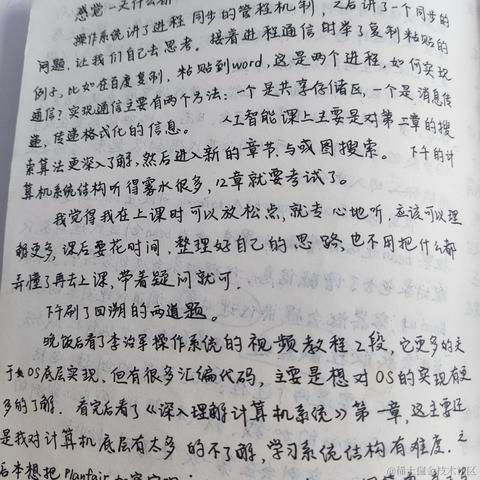 感觉一天什么都
操作系统讲了进程同步的管程机制，之后讲了一个同步的
问题，让我们自己去思考。接着进程通信时举了复制粘贴的
例子，比如在百度复制，粘贴到word，这是两个进程，如何实现
通信？实现通信主要有两个方法：一个是共享存储区，一个是消息传
递，传递格式化的信息。 人工智能课上主要是对第二章的搜
索算法更深入了解，然后进入新的章节与或图搜索。 下午的计
算机系统结构听得雾水很多，12章就要考试了。
我觉得我在上课时可以放松点，就专心地听，应该可以理
解更多，课后要花时间，整理好自己的思路，也不用把什么都
弄懂了再去上课，带着疑问就可。
下午刷了回溯的两道题。
晚饭后看了李治军操作系统的视频教程2段，它更多的关
于OS底层实现，但有很多汇编代码，主要是想对OS的实现有更
多的了解．看完后看了《深入理解计算机系统》第一章，这主要还
是我对计算机底层有太多的不了解，学习系统结构有难度．之
后本想把Planfair
@稀土掘金技术社区